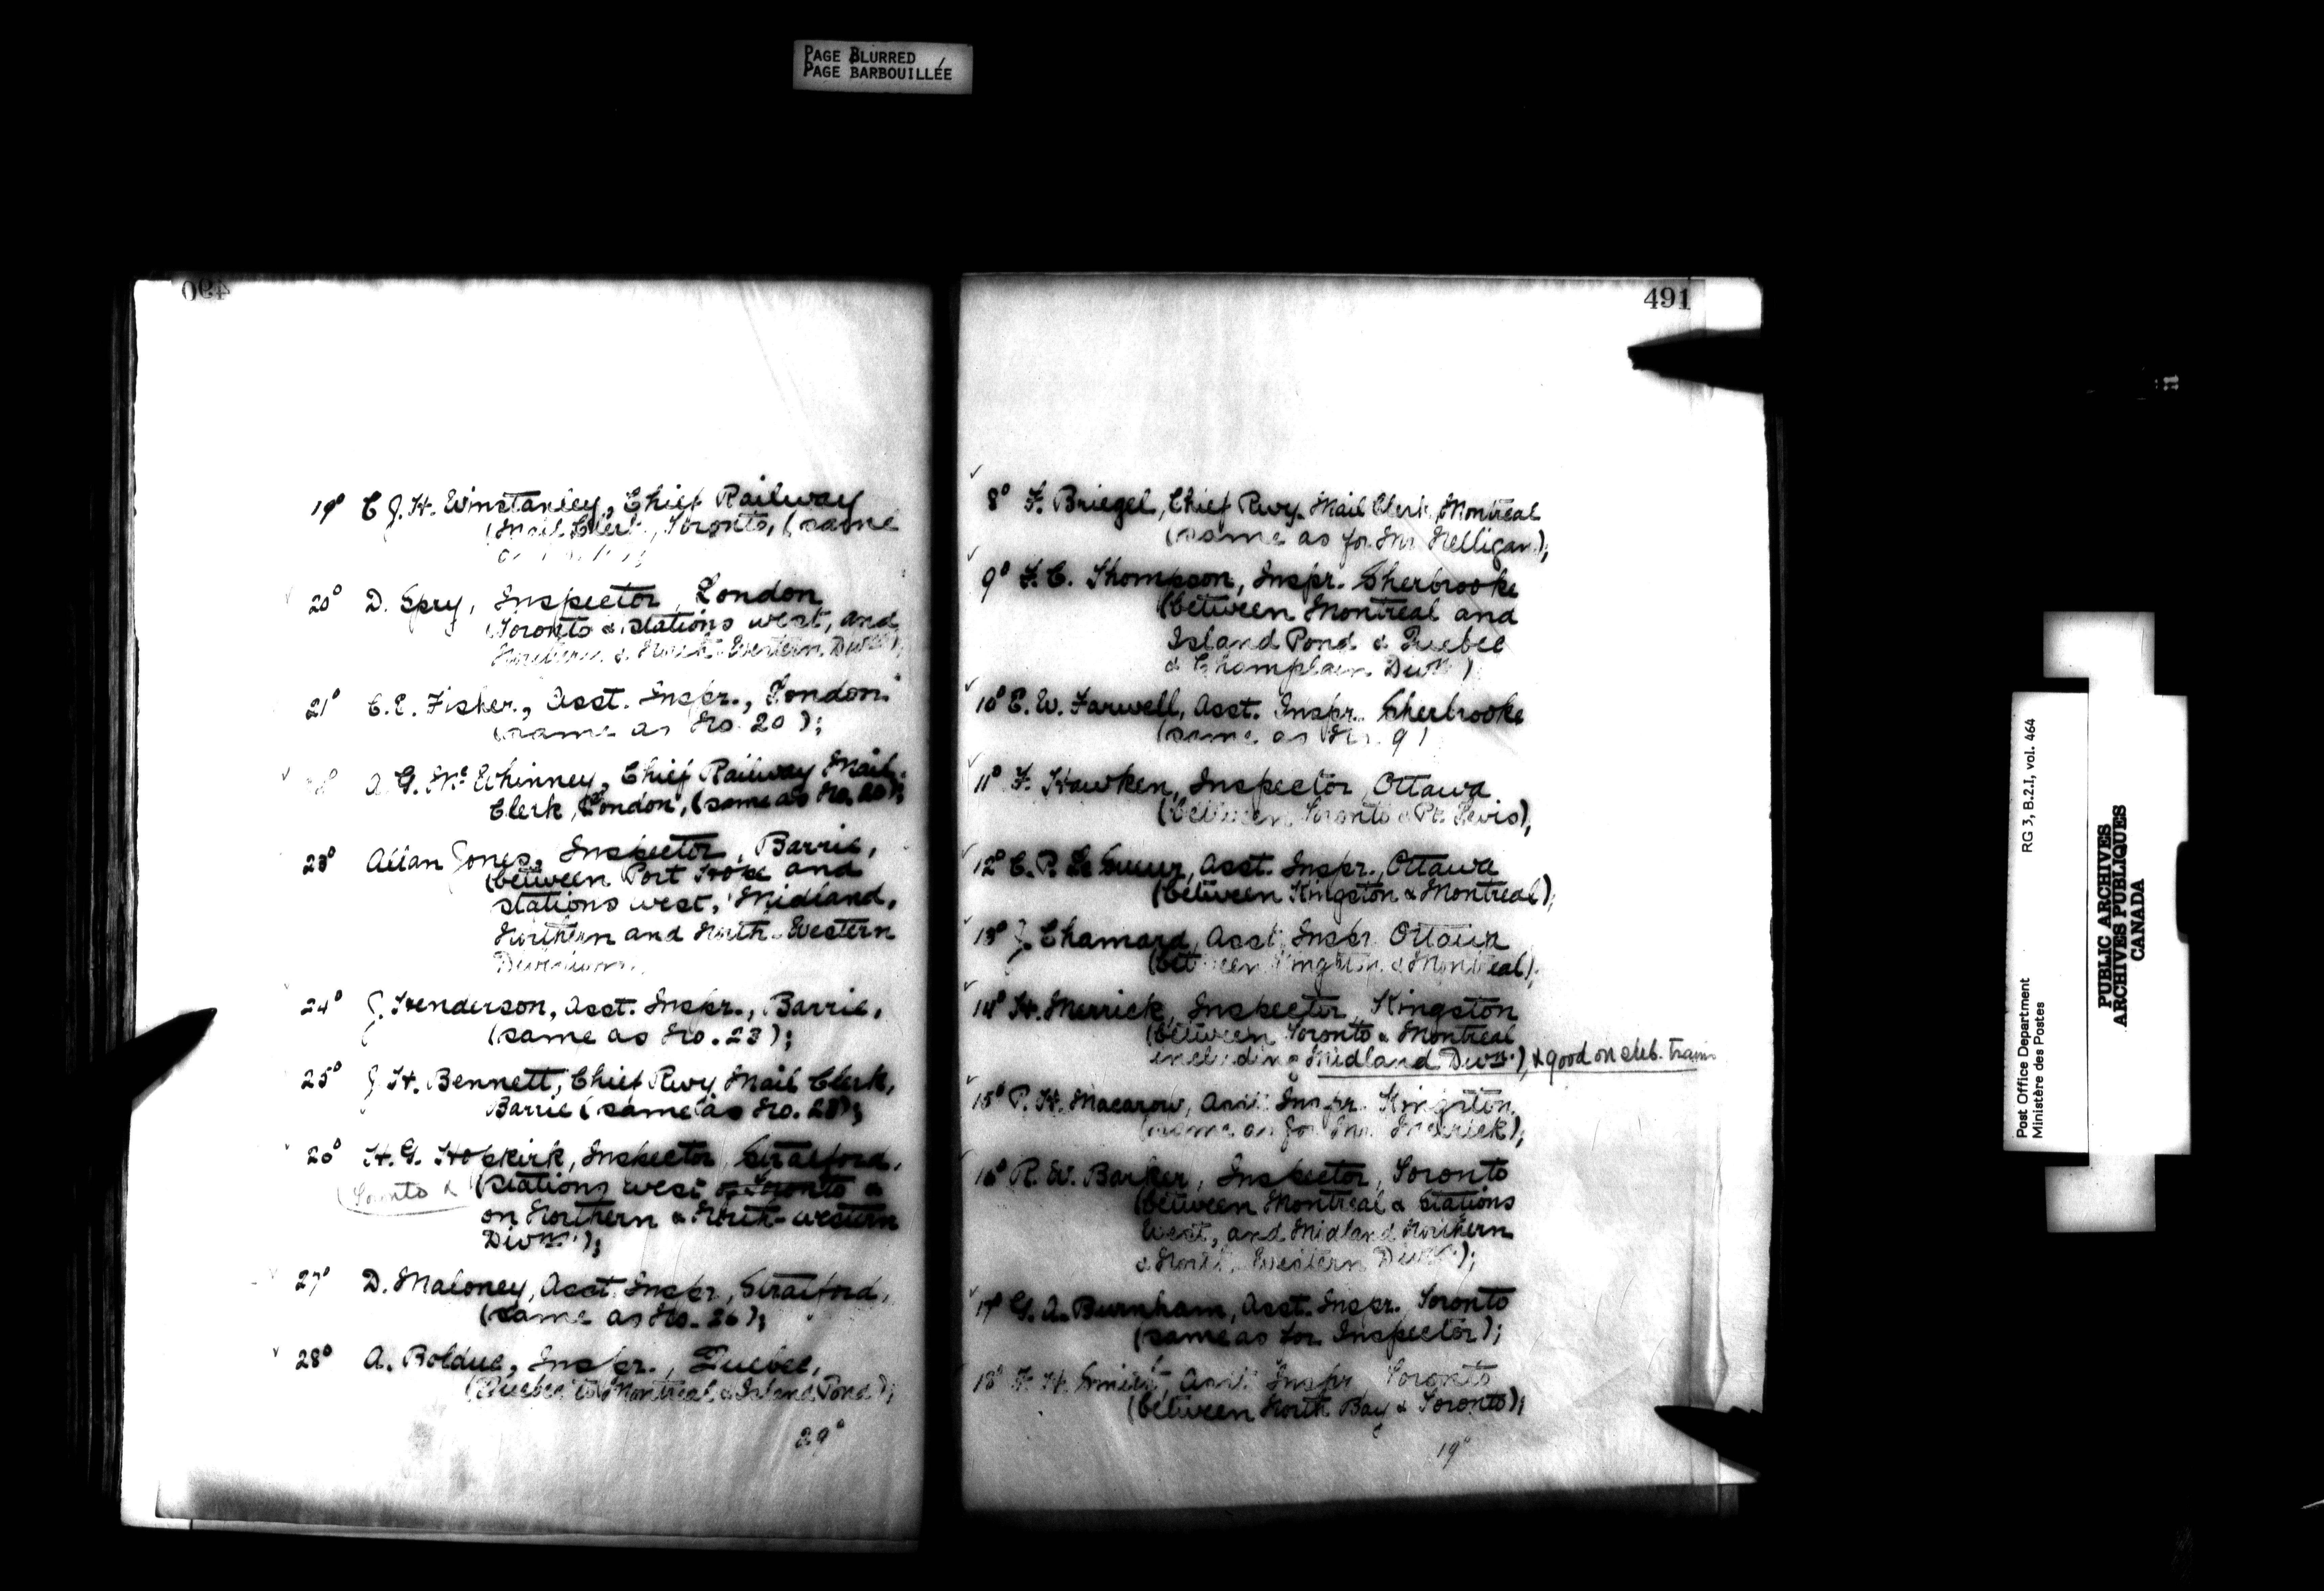 PAGE BLURRED
PAGE BARBOUILLÉE
490
19° C. J. H. Winstanley, Chief Railway
(Mail Clerk, Toronto, (same
20° D. Spry, Inspector, London
(Toronto & stations west, and
Northern & North-Western Divns);
21° C. E. Fisher, Asst. Inspr., London
(same as No. 20);
A. G. McWhinney, Chief Railway Mail
Clerk, London, (same as No. 20);
23° Allan Jones, Inspector, Barrie,
(between Port Hope and
stations west, Midland,
Northern and North-Western
Divisions
24° J. Henderson, Asst. Inspr., Barrie,
(same as No. 23);
25° J. H. Bennett, Chief Rwy. Mail Clerk,
Barrie (same as No. 23);
26° H. G. Hopkirk, Inspector, Stratford,
(Toronto & (stations west of Toronto &
on Northern & North-western
Divns.);
27° D. Maloney, Asst. Inspr., Stratford,
(same as No. 26);
28° A. Bolduc, Inspr., Quebec,
(Quebec to Montreal & Island Pond);
29°
491
8° F. Briegel, Chief Rwy. Mail Clerk, Montreal
(same as for Mr. Nelligan);
9° F. C. Thompson, Inspr. Sherbrooke
(between Montreal and
Island Pond & Quebec
& Champlain Divn)
10° E. W. Farwell, Asst. Inspr. Sherbrooke
(same as No. 9)
11° F. Hawken, Inspector, Ottawa
(between Toronto & Pt. Levis),
12° E. P. Le Sueur, Asst. Inspr., Ottawa
(between Kingston & Montreal);
13° J. Chamard, Asst. Inspr. Ottawa
(between Kingston & Montreal);
14° H. Merrick, Inspector, Kingston
(between Toronto & Montreal
including Midland Divn.), & good on sub. trains
15° P. H. Macarow, Asst. Inspr. Kingston
(same as for Mr. Merrick);
16° R. W. Barker, Inspector, Toronto
(between Montreal & Stations
West, and Midland Northern
& North-Western Divns.);
17° G. A. Burnham, Asst. Inspr. Toronto
(same as for Inspector);
18° F. H. Smith, Asst. Inspr. Toronto
(between North Bay & Toronto);
19°
Post Office Department
Ministère des Postes
RG 3, B.2.I, vol. 464
PUBLIC ARCHIVES
ARCHIVES PUBLIQUES
CANADA